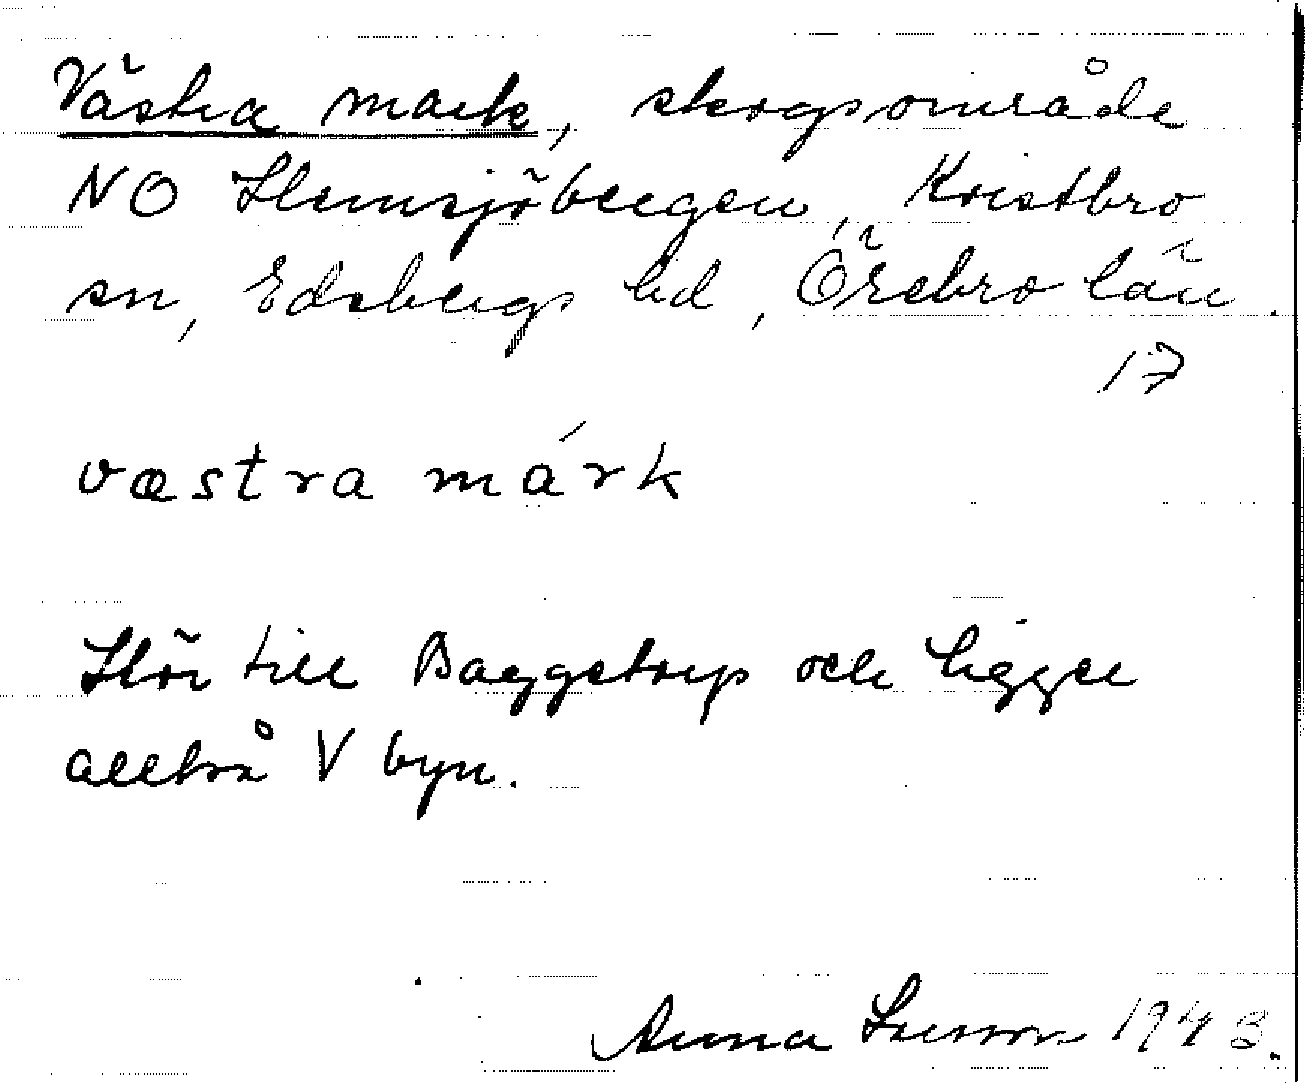 Västra mark, skogsområde
NO Hemsjöbergen, Kvistbro
sn, Edsbergs hd, Örebro län.
17
væstra márk
Hör till Baggetorp och ligger
alltså V byn.
Anna 1943.